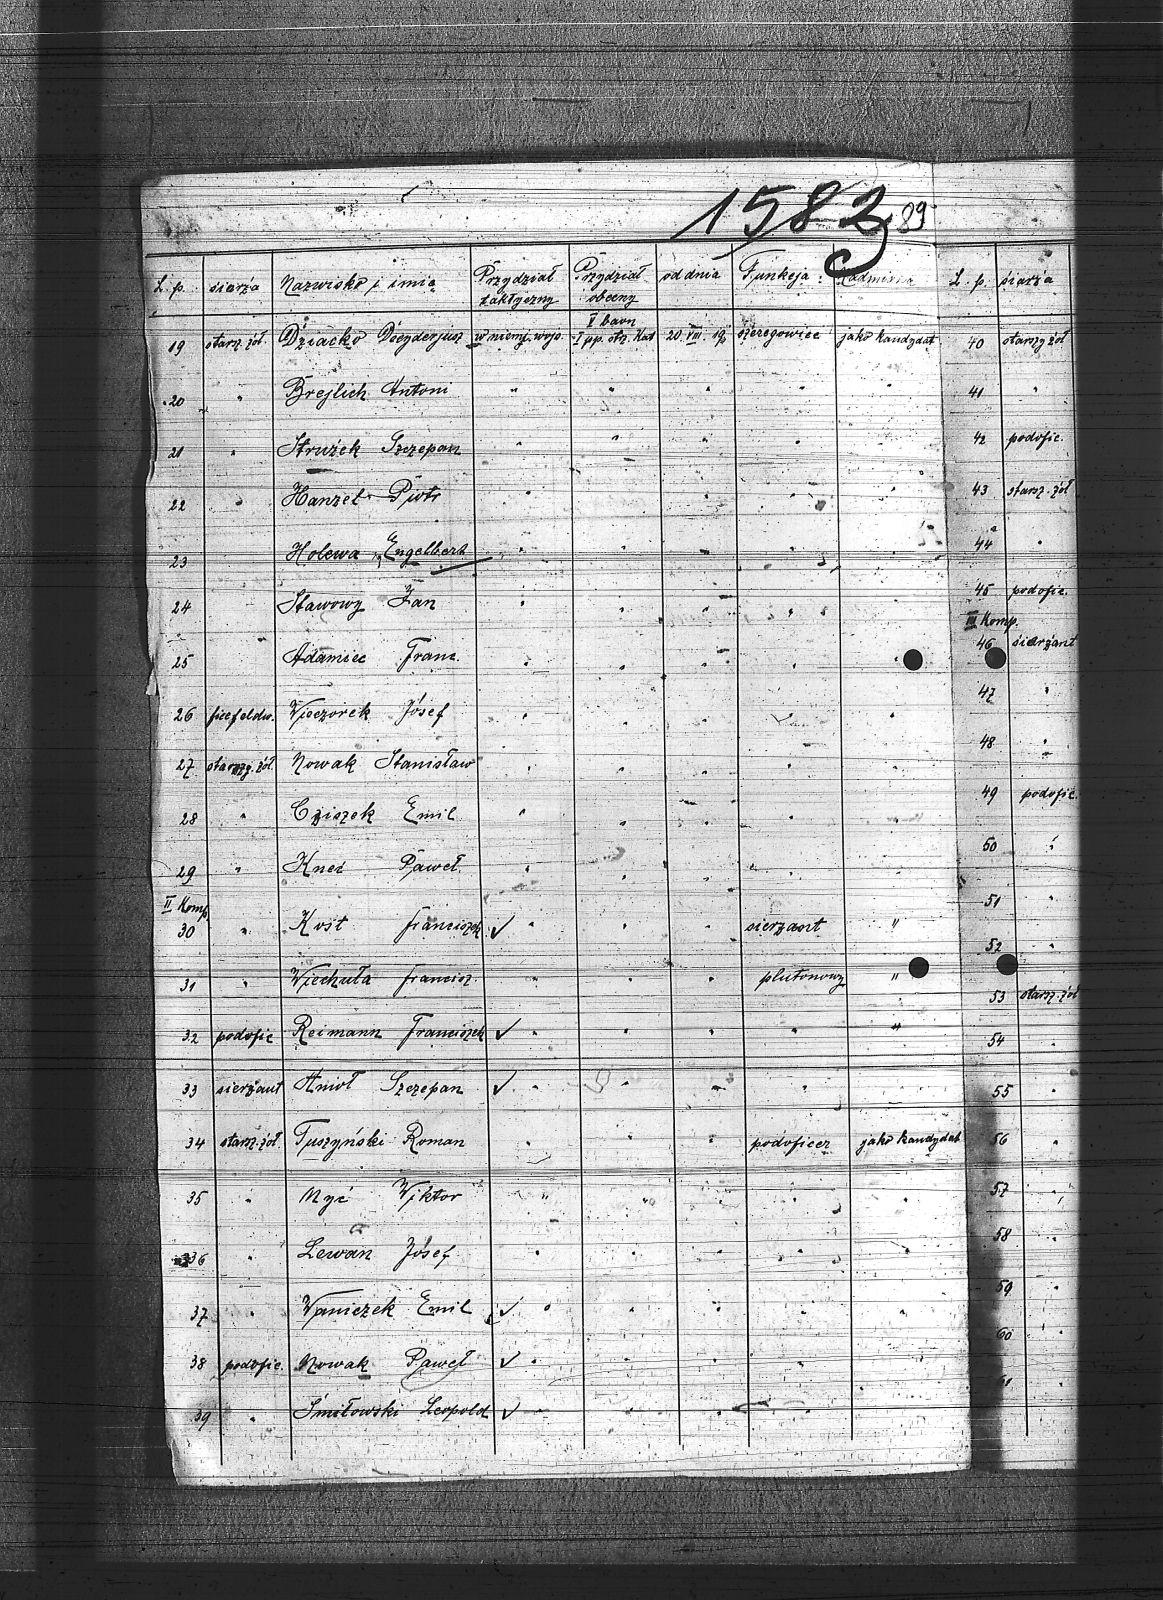 1583 89
L. p. siarża Nazwisko i imię Przydział taktyczny Przydział obecny od dnia Funkcja: L. p. siarża
V baon
19 starsz. żoł. Dziacko w niemj. wojs. I pp. otz. Kat 20. VIII. 19 szeregowiec jako kandydat 40 starszy żoł
20 " Brejlich Antoni " " " " " 41 "
21 " Strużek Szczepan " " " " " 42 podofic.
22 " Hanzel Piotr " " " " " 43 starsz. żoł
23 Holewa Engelbert " " " " 44 "
24 Stawowy Jan " " " " " 45 podofic.
III Komp.
25 Adamiec Franc. " " " " " 46 sierżant
26 ficefeldw. Wieczorek Józef " " " " 47 "
27 starszy. żoł. Nowak Stanisław " " " " " 48 "
28 " Cziszek Emil " " " " " 49 podofic.
29 " Kneć Paweł " " " " " 50 "
II Komp. 51 "
30 " Kost Franciszek ✓ " " " sierżant " 52 "
31 " Wiechuła Francisz. " " " plutonowy " 53 starsz. żoł
32 podofic Reimann Franciszek ✓ " " " " " 54 "
33 sierżant Anioł Szczepan ✓ " " " " " 55 "
34 starsz. żoł Tuszyński Roman " " " podoficer jako kandydat 56 "
35 " Nyć Wiktor " " " " " 57 "
36 " Lewan Józef " " " " " 58 "
37 " Waniczek Emil ✓ " " " " " 59 "
38 podofic. Nowak Paweł ✓ " " " " " 60 "
39 " Śmiłowski Leopold ✓ " " " " " 61 "